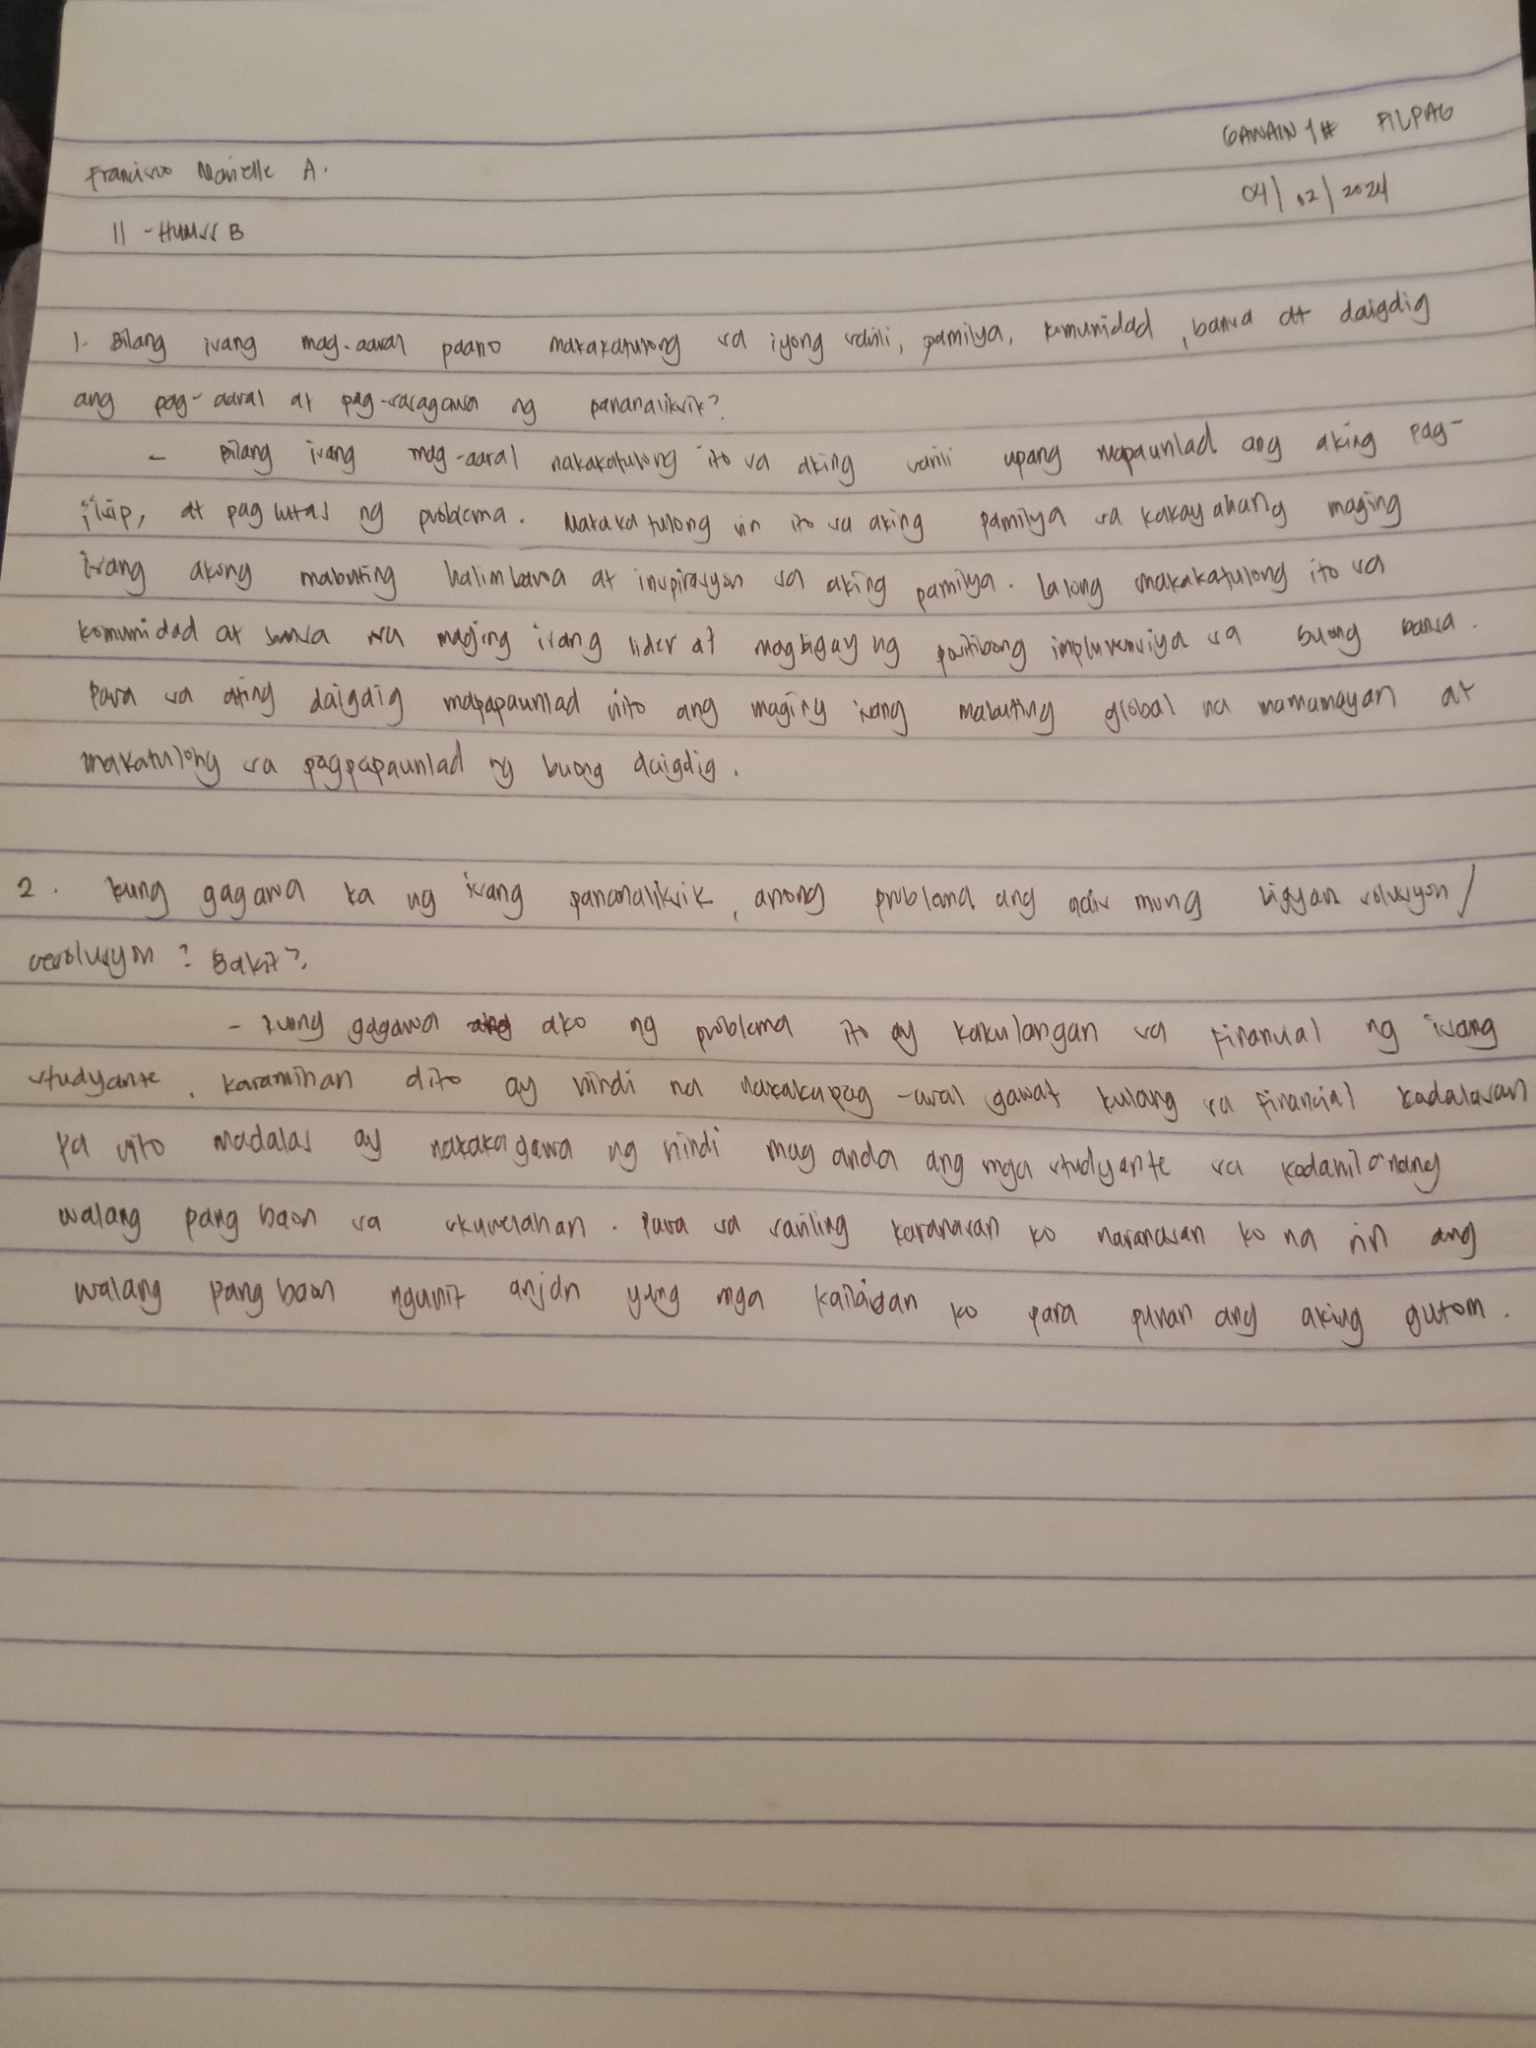 Francisco Marielle A.
GAWAIN 1# FILPAG
04/02/2024
11 - HUMSS B
1. Bilang isang mag-aaral paano makakatulong sa iyong sarili, pamilya, komunidad, bansa at daigdig
ang pag-aaral at pag-sasagawa ng pananaliksik?
- Bilang isang mag-aaral nakakatulong ito sa aking sarili upang mapaunlad ang aking pag-
iisip, at pag lutas ng problema. Makaka tulong rin ito sa aking pamilya sa kakayahang maging
isang akong mabuting halimbawa at inspirasyon sa aking pamilya. lalong makakatulong ito sa
komunidad at bansa na maging isang lider at magbigay ng positibong impluwensiya sa buong bansa.
Para sa ating daigdig mapapaunlad nito ang maging isang mabuting global na mamamayan at
makatulong sa pagpapaunlad ng buong daigdig.
2. kung gagawa ka ng isang pananaliksik, anong problema ang nais mong bigyan solusyon/
resolusyon? Bakit?
- kung gagawa ako ng problema ito ay kakulangan sa Financial ng isang
studyante. karamihan dito ay hindi na nakakapag-aral gawat kulang sa financial kadalasan
pa nito madalas ay nakaka gawa ng hindi mag anda ang mga studyante sa kadahilanang
walang pang baon sa skuwelahan. Para sa sariling karanasan ko naranasan ko na rin ang
walang pang baon ngunit anjan yung mga kaibigan ko para punan ang aking gutom.